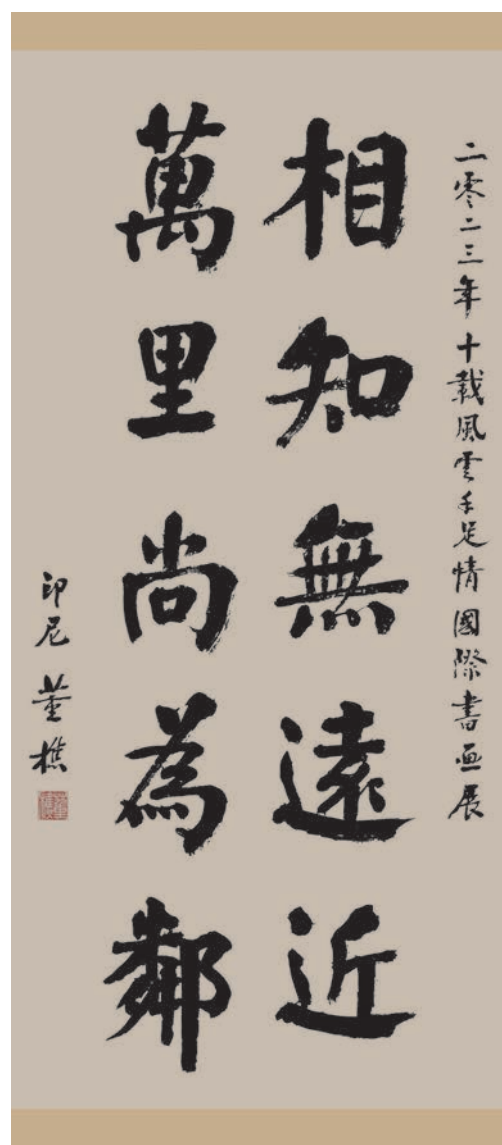 二零二三年十載風雲手足情國際書画展
相知無遠近
萬里尚為鄰
印尼 董樵